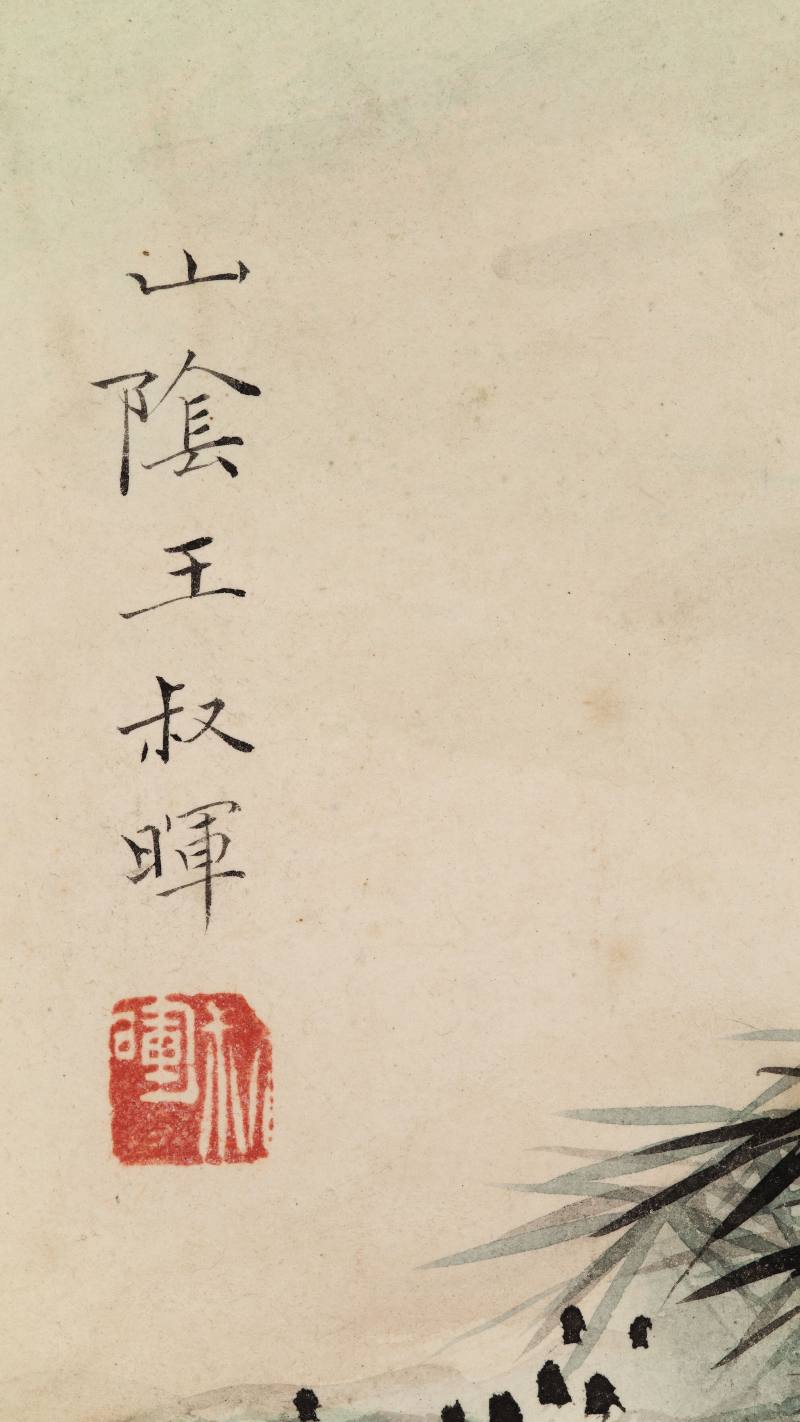 山陰王叔暉
叔暉